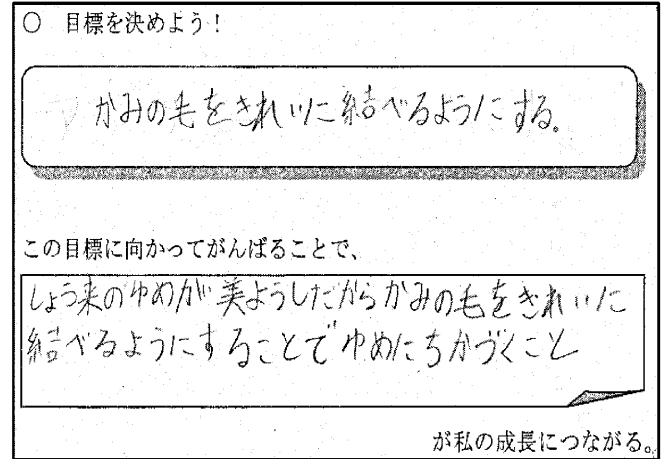 ○ 目標を決めよう！
かみの毛をきれいに結べるようにする。
この目標に向かってがんばることで、
しょう来のゆめが美ようしだからかみの毛をきれいに
結べるようにすることでゆめにちかづくこと
が私の成長につながる。